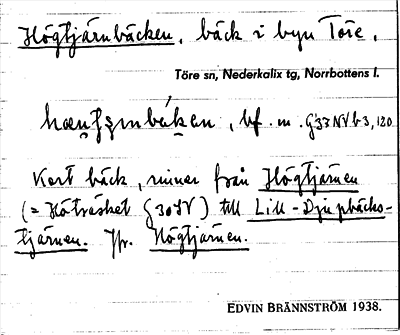 Högtjärnbäcken, bäck i byn Töre.
Töre sn, Nederkalix tg, Norrbottens l.
bf. m. G33NVb3,120
Kort bäck, rinner från Högtjärnen
(= Höträsket G30SV) till Lill-Djupbäcks-
tjärnen. Jfr. Högtjärnen.
EDVIN BRÄNNSTRÖM 1938.